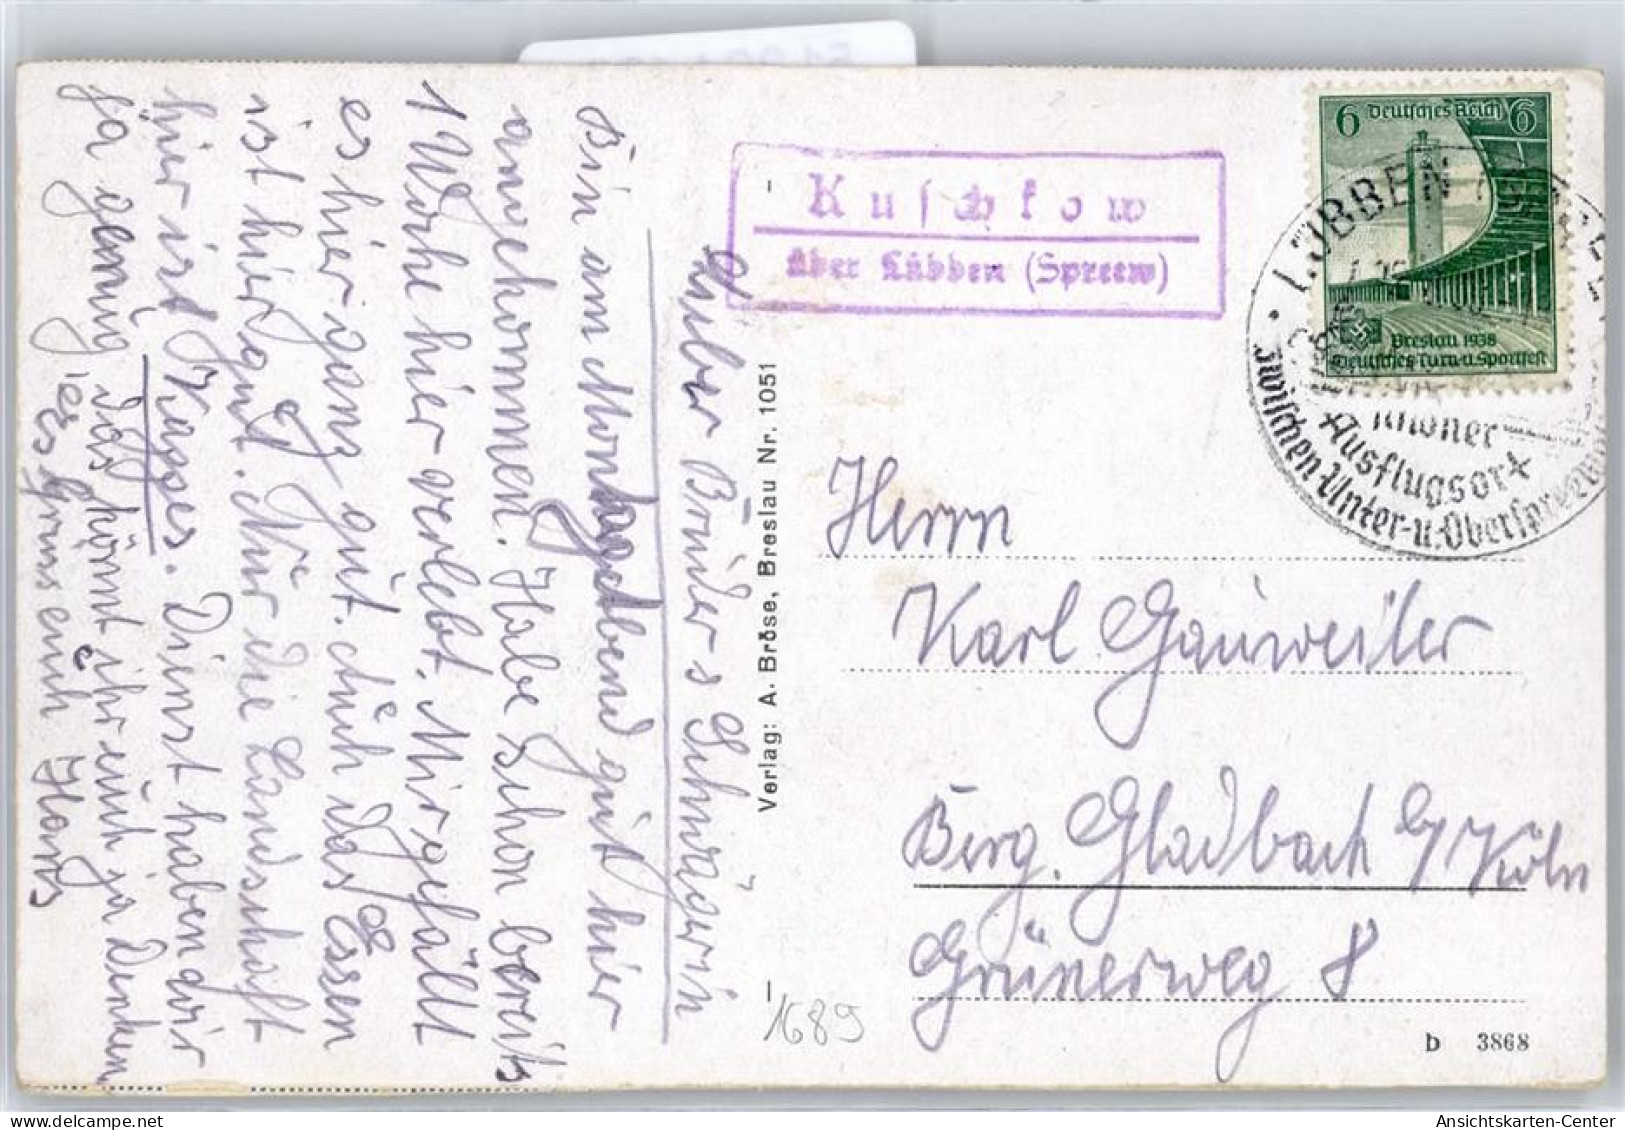 Lieber Bruder s Schwägerin
Bin am Montagabend gut hier
angekommen. Habe schon bereits
1 Woche hier verlebt. Mir gefällt
es hier ganz gut. Auch das Essen
ist hier gut. Nur die Landschaft
hier ist Knapes. Dienst haben wir
ja genug das könnt ihr euch ja Denken
es Grüns euch Hans
Verlag: A. Bröse, Breslau Nr. 1051
Kuschkow
über Lübben (Spreew)
6 Deutsches Reich 6
Breslau 1938
Deutsches Turn-u. Sportfest
LÜBBEN
schöner
Ausflugsort
zwischen Unter-u. Oberspreewald
Herrn
Karl Gauweiler
Berg. Gladbach b/Köln
Grünerweg 8
1689
b 3868
Ansichtskarten-Center